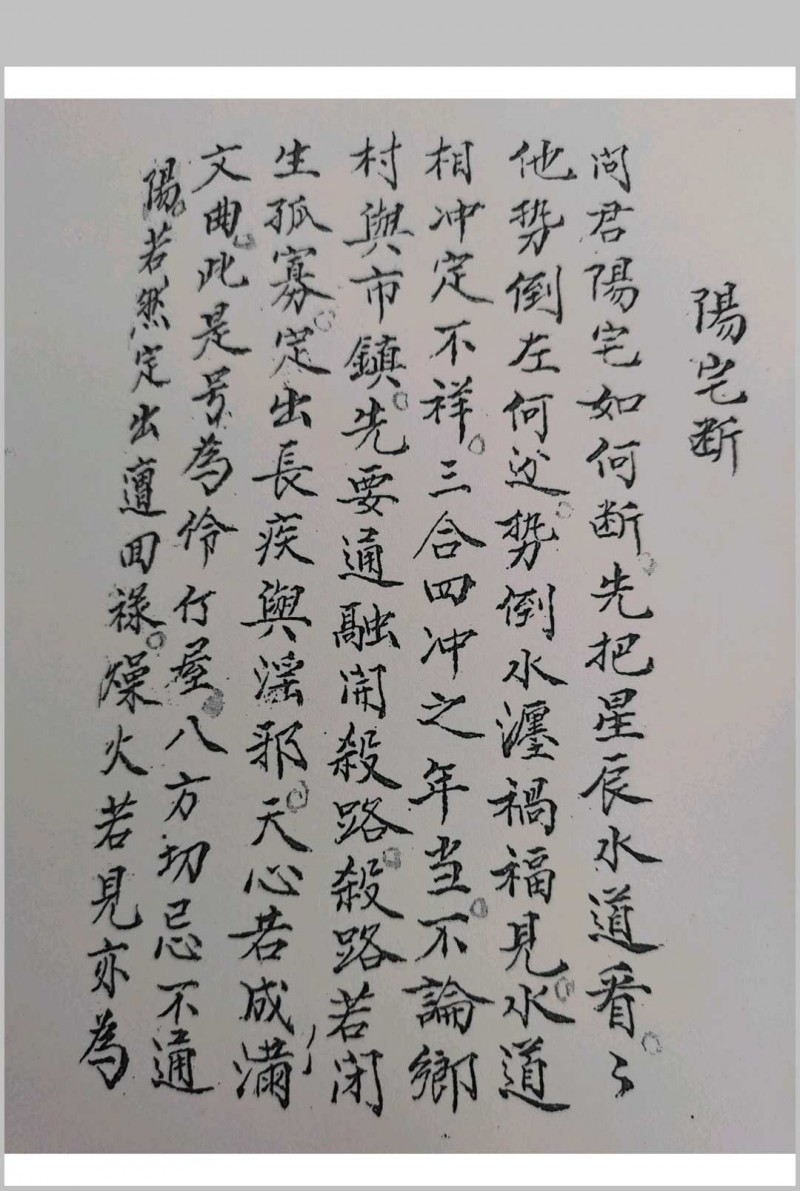 陽宅断
问君陽宅如何断。先把星辰水道看。〻
他势倒左何边。势倒水瀍禍福見。水道
相冲定不祥。三合四冲之年当。不論鄉
村與市鎮。先要通融開殺路。殺路若闭
生孤寡。定出長疾與淫邪。天心若成满
文曲。此是号為伶仃屋。八方切忌不通
陽。若然定出遭回祿。燥火若見亦為